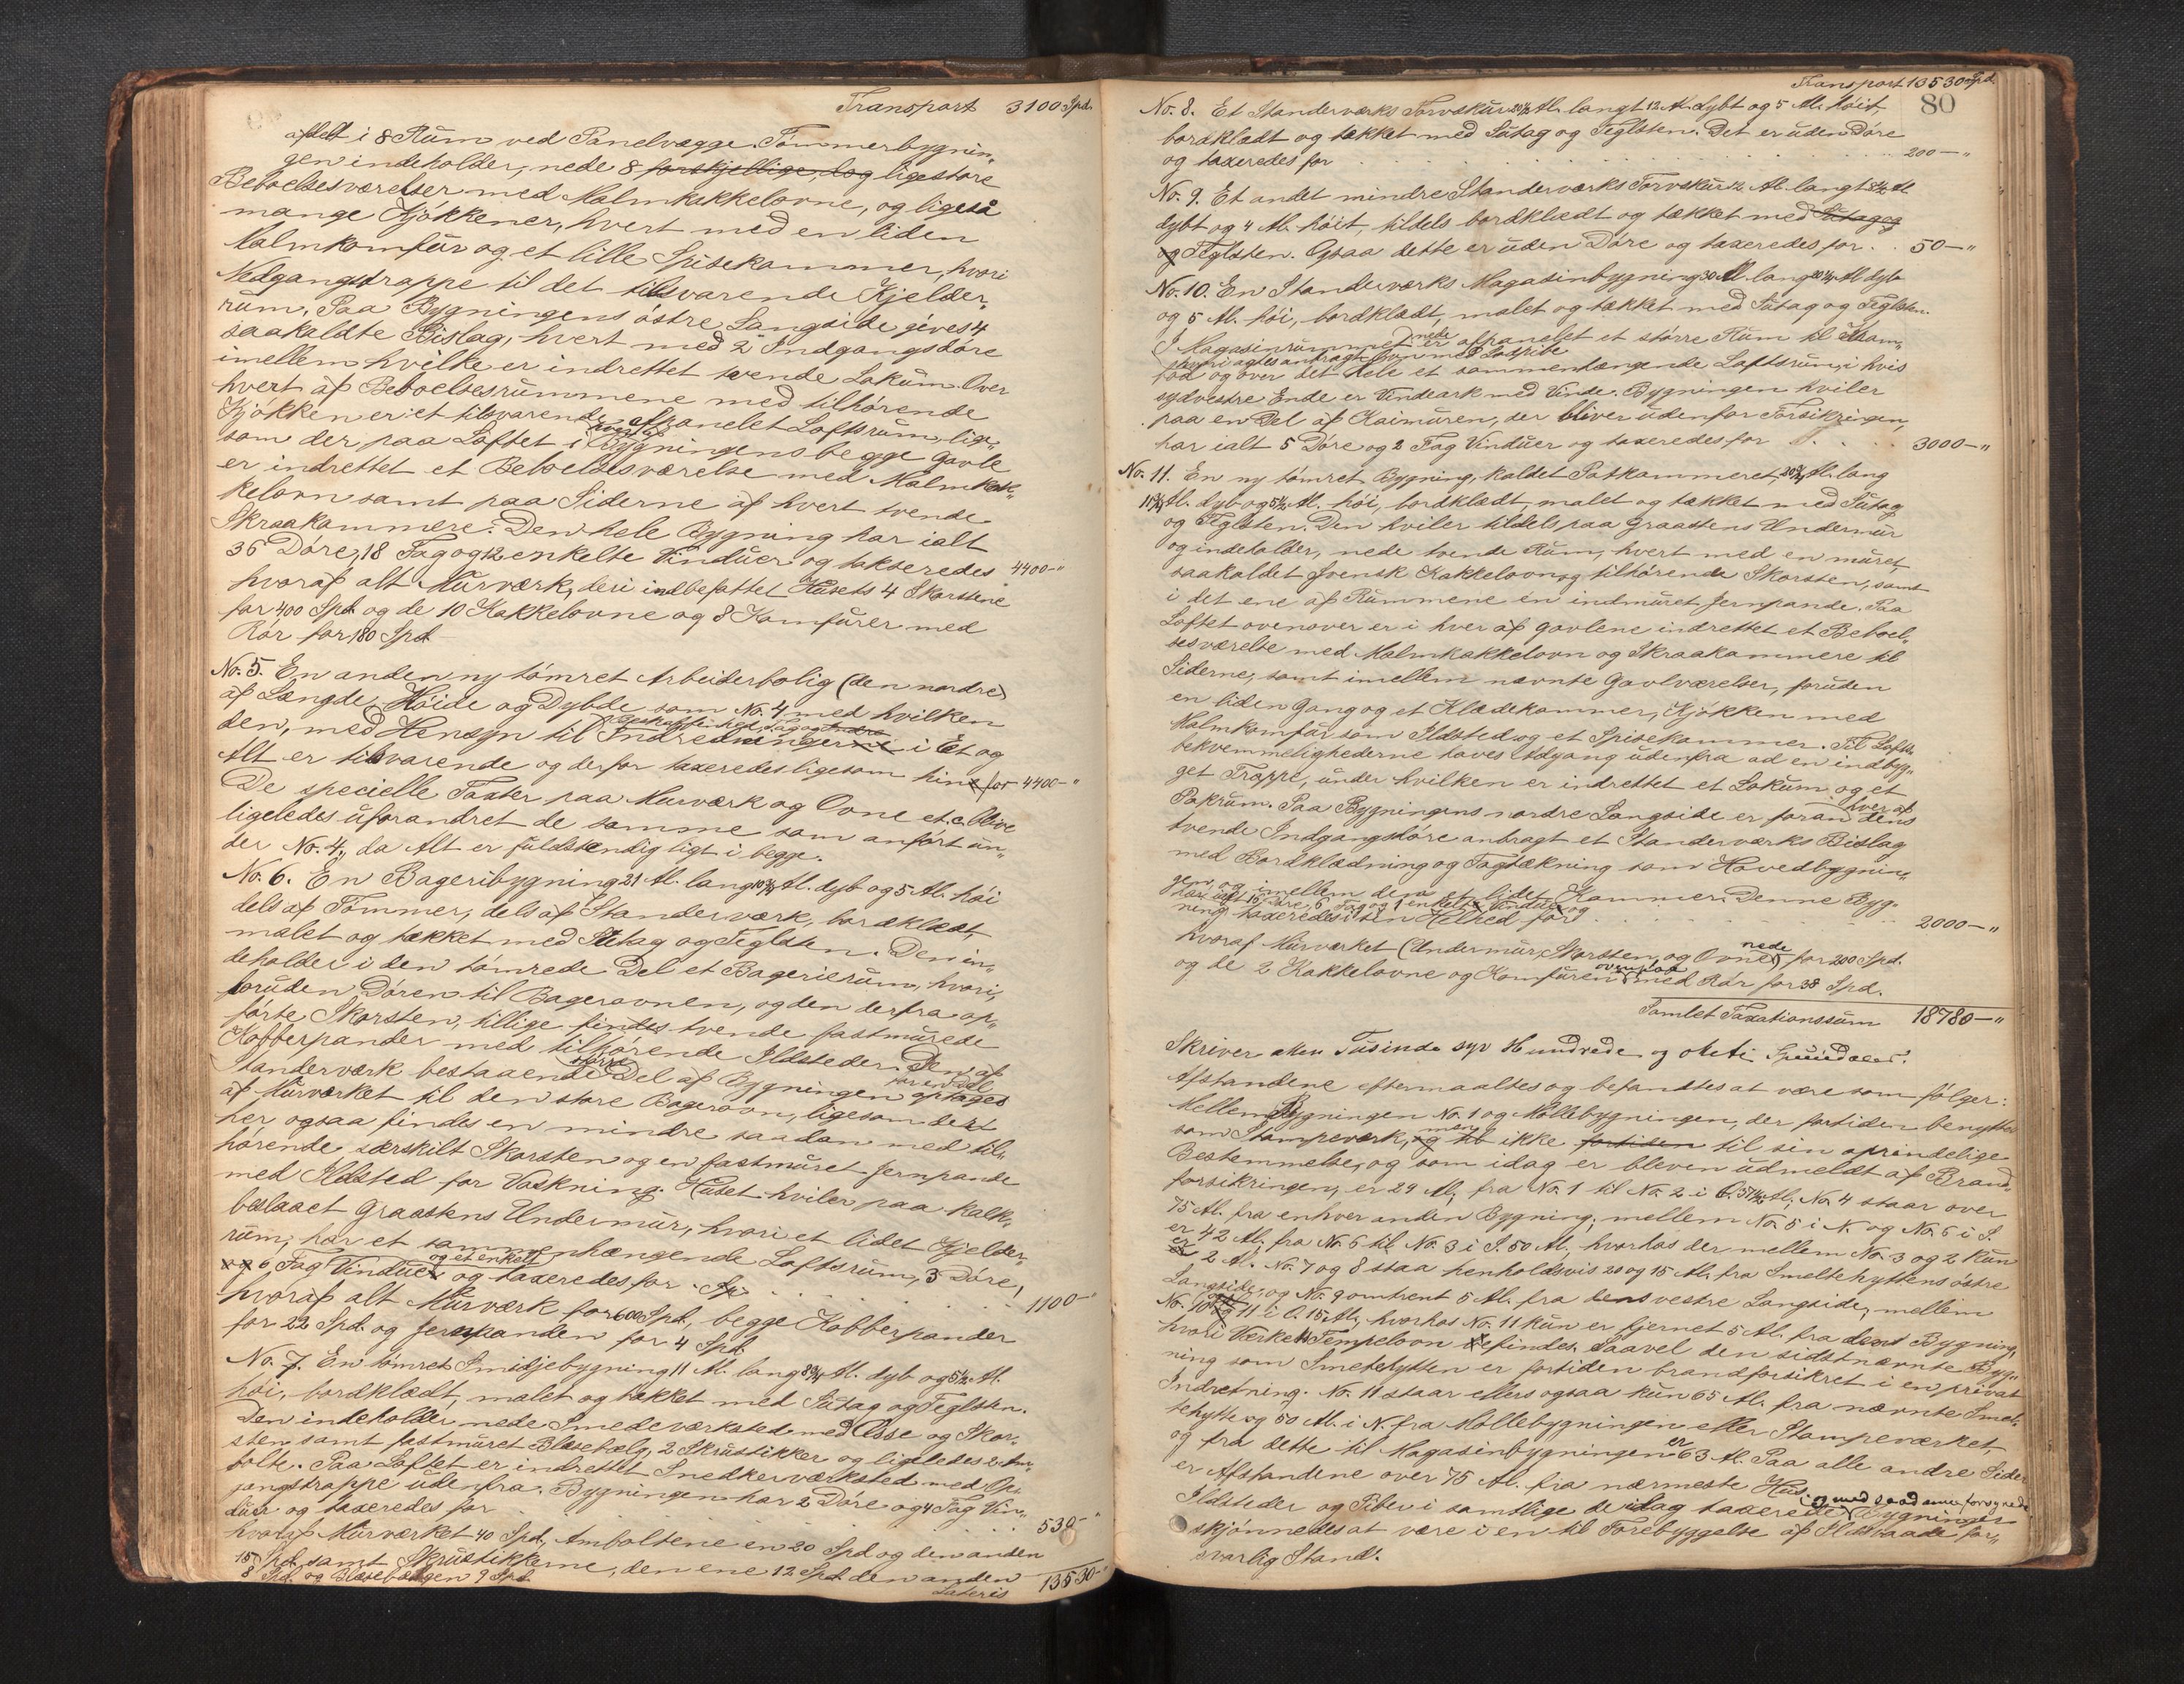 Transport 3100 Spd.
afdelt i 8 Rum ved Panelvægge. Tømmerbygnin„
gen indeholder, nede 8 forskjellige, dog ligestore
Beboelsesværelser med Malmkakkelovne, og ligesaa
mange Kjøkkener, hvert med en liden
Malmkomfur og et lille Spisekammer, hvori
Nedgangstrappe til det tilsvarende Kjelder„
rum. Paa Bygningens østre Langside gives 4
saakaldte Bislag, hvert med 2 Indgangsdøre
imellem hvilke er indrettet tvende Lokum. Over
hvert af Beboelsesrummene med tilhørende
Kjøkken er et tilsvarende afpanelet Loftsrum, lige„
som der paa Loftet i hver af Bygningens begge Gavle
er indrettet et Beboelsesværelse med Malmkak„
kelovn samt paa Siderne af hvert tvende
Skraakammere. Den hele Bygning har ialt
36 Døre, 18 Fag og 12 enkelte Vinduer og takseredes 4400-"
hvoraf alt Murværk, deri indbefattet Husets 4 Skorstene
for 400 Spd. og de 10 Kakkelovne og 8 Komfurer med
Rør for 180 Spd.
No. 5. En anden ny tømret Arbeiderbolig (den nordre)
af Længde, Høide og Dybde som No. 4 med hvilken
den, med Hensyn til Beskaffenhed, Fag og Indredningerne i Et og
Alt er tilsvarende og derfor taxeredes ligesom hin for 4400-"
De specielle Taxter paa Murværk og Ovne etc. blive
ligeledes uforandret de samme som anført un„
der No. 4, da Alt er fuldstændig ligt i begge.
No. 6. En Bageribygning 21 Al. lang 10 3/4 Al. dyb og 5 Al. høi
dels af Tømmer, dels af Standerværk, bordklædt,
malet og tækket med Sutag og Teglsten. Den in„
deholder i den tømrede Del et Bagerierum, hvori,
foruden Døren til Bagerovnen, og den derfra op„
førte Skorsten, tillige findes tvende fastmurede
Kobberpander med tilhørende Ildsteder. Den af
Standerværk bestaaende større Del af Bygningen optages for en Del
af Murværket til den store Bagerovn, ligesom der
her ogsaa findes en mindre saadan med til„
hørende særskilt Skorsten og en fastmuret Jernpande
med Ildsted for Vaskning. Huset hviler paa kalk„
beslaaet Graastens Undermur, hvori et lidet Kjelder„
rum, har et sammenhængende Loftsrum, 3 Døre,
og 6 Fag Vinduer og et enkelt og taxeredes for . . . 1100-"
hvoraf alt Murværk for 600 Spd., begge Kobberpander
for 22 Spd. og Jernpanden for 4 Spd.
No. 7. En tømret Smidjebygning 11 Al. lang 8 3/4 Al. dyb og 5 1/2 Al.
høi, bordklædt, malet og tækket med Sutag og Teglsten.
Den indeholder nede Smedeværksted med Esse og Skor„
sten samt fastmuret Blæsebælg, 2 Skrustikker og ligeledes 2 Am„
bolte. Paa Loftet er indrettet Snedkerværksted med Op„
gangstrappe udenfra. Bygningen har 2 Døre og 4 Fag Vin„
duer og taxeredes for . . . 530-"
hvoraf Murværket 40 Spd., Amboltene en 20 Spd. og den anden
15 Spd. samt Skrustikkerne, den ene 12 Spd. den anden
8 Spd. og Blæsebælgen 9 Spd.
Lateris 13530-"
Transport 13530 Spd.
80
No. 8. Et Standerværks Torvskur 20 1/2 Al. langt 12 Al. dybt og 5 Al. høit,
bordklædt og tækket med Sutag og Teglsten. Det er uden Døre
og taxeredes for . . . 200-"
No. 9. Et andet mindre Standerværks Torvskur 12 Al. langt 8 1/2 Al.
dybt og 4 Al. høit, tildels bordklædt og tækket med Sutag og
og Teglsten. Ogsaa dette er uden Døre og taxeredes for . . 50-"
No. 10. En Standerværks Magasinbygning 30 Al. lang 20 1/4 Al. dyb
og 5 Al. høi, bordklædt, malet og tækket med Sutag og Teglsten.
I Magasinrummet nede er afpanelet et større Rum til
og over det Hele et sammenhængende Loftsrum, i hvis
sydvestre Ende er Vindeark med Vinde. Bygningen hviler
paa en Del af Kaimuren, der bliver udenfor Forsikringen,
har ialt 5 Døre og 2 Fag Vinduer og taxeredes for . . . 3000-"
No. 11. En ny tømret Bygning, kaldet Potkammeret, 20 3/4 Al. lang
11 3/4 Al. dyb og 5 1/2 Al. høi, bordklædt, malet og tækket med Sutag
og Teglsten. Den hviler tildels paa Graastens Undermur
og indeholder, nede tvende Rum, hvert med en muret
saakaldet Svensk Kakkelovn og tilhørende Skorsten, samt
i det ene af Rummene en indmuret Jernpande. Paa
Loftet ovenover er i hver af Gavlene indrettet et Beboel„
sesværelse med Malmkakkelovn og Skraakammere til
Siderne, samt imellem nævnte Gavlværelser, foruden
en liden Gang og et Klædekammer, Kjøkken med
Malmkomfur som Ildsted og et Spisekammer. Til Lofts„
bekvemmelighederne haves Adgang udenfra ad en indbyg„
get Trappe, under hvilken er indrettet et Lokum og et
Pakrum. Paa Bygningens nordre Langside er foran hver af dens
tvende Indgangsdøre anbragt et Standerværks Bislag
med Bordklædning og Tagtækning som Hovedbygnin„
gen og imellem dem et lidet Kammer. Denne Byg„
har ialt 15 Døre, 6 Fag og 1 enkelt Vindue og
ning taxeredes i sin Helhed for . . . 2000-"
hvoraf Murværket (Undermur, Skorsten og Ovne nede) for 200 Spd.
og de 2 Kakkelovne og Komfuren ovenpaa med Rør for 38 Spd.
Samlet Taxationssum 18780-"
Skriver Atten Tusinde syv Hundrede og otteti Speciedaler.
Afstandene eftermaaltes og befandtes at være som følger:
Mellem Bygningen No. 1 og Møllebygningen, der fortiden benyttes
som Stampeværk, og til men ikke fortiden til sin oprindelige
Bestemmelse, og som idag er bleven udmeldt af Brand„
forsikringen, er 29 Al., fra No. 1 til No. 2 i Ø. 57 1/2 Al., No. 4 staar over
75 Al. fra enhver anden Bygning; mellem No. 5 i N. og No. 6 i S.
er 42 Al., fra No. 6 til No. 3 i S. 50 Al., hvorhos der mellem No. 3 og 2 kun
er 2 Al. No. 7 og 8 staa henholdsvis 20 og 15 Al. fra Smeltehyttens østre
Langside, og No. 9 omtrent 5 Al. fra dens vestre Langside, mellem
No. 10 og 11 i Ø. 15 Al., hvorhos No. 11 kun er fjernet 5 Al. fra den Bygning,
hvori Værkets Tempelovn befindes. Saavel den sidstnævnte Byg„
ning som Smeltehytten er fortiden brandforsikret i en privat
Indretning. No. 11 staar ellers ogsaa kun 65 Al. fra nævnte Smel„
tehytte og 50 Al. i N. fra Møllebygningen eller Stampeværket,
og fra dette til Magasinbygningen er 63 Al. Paa alle andre Sider
er Afstandene over 75 Al. fra nærmeste Hus.
Ildsteder og Piber i samtlige de idag taxerede og med saadanne forsynede Bygninger
skjønnedes at være i en til Forebyggelse af Ildsvaade for„
svarlig Stand.